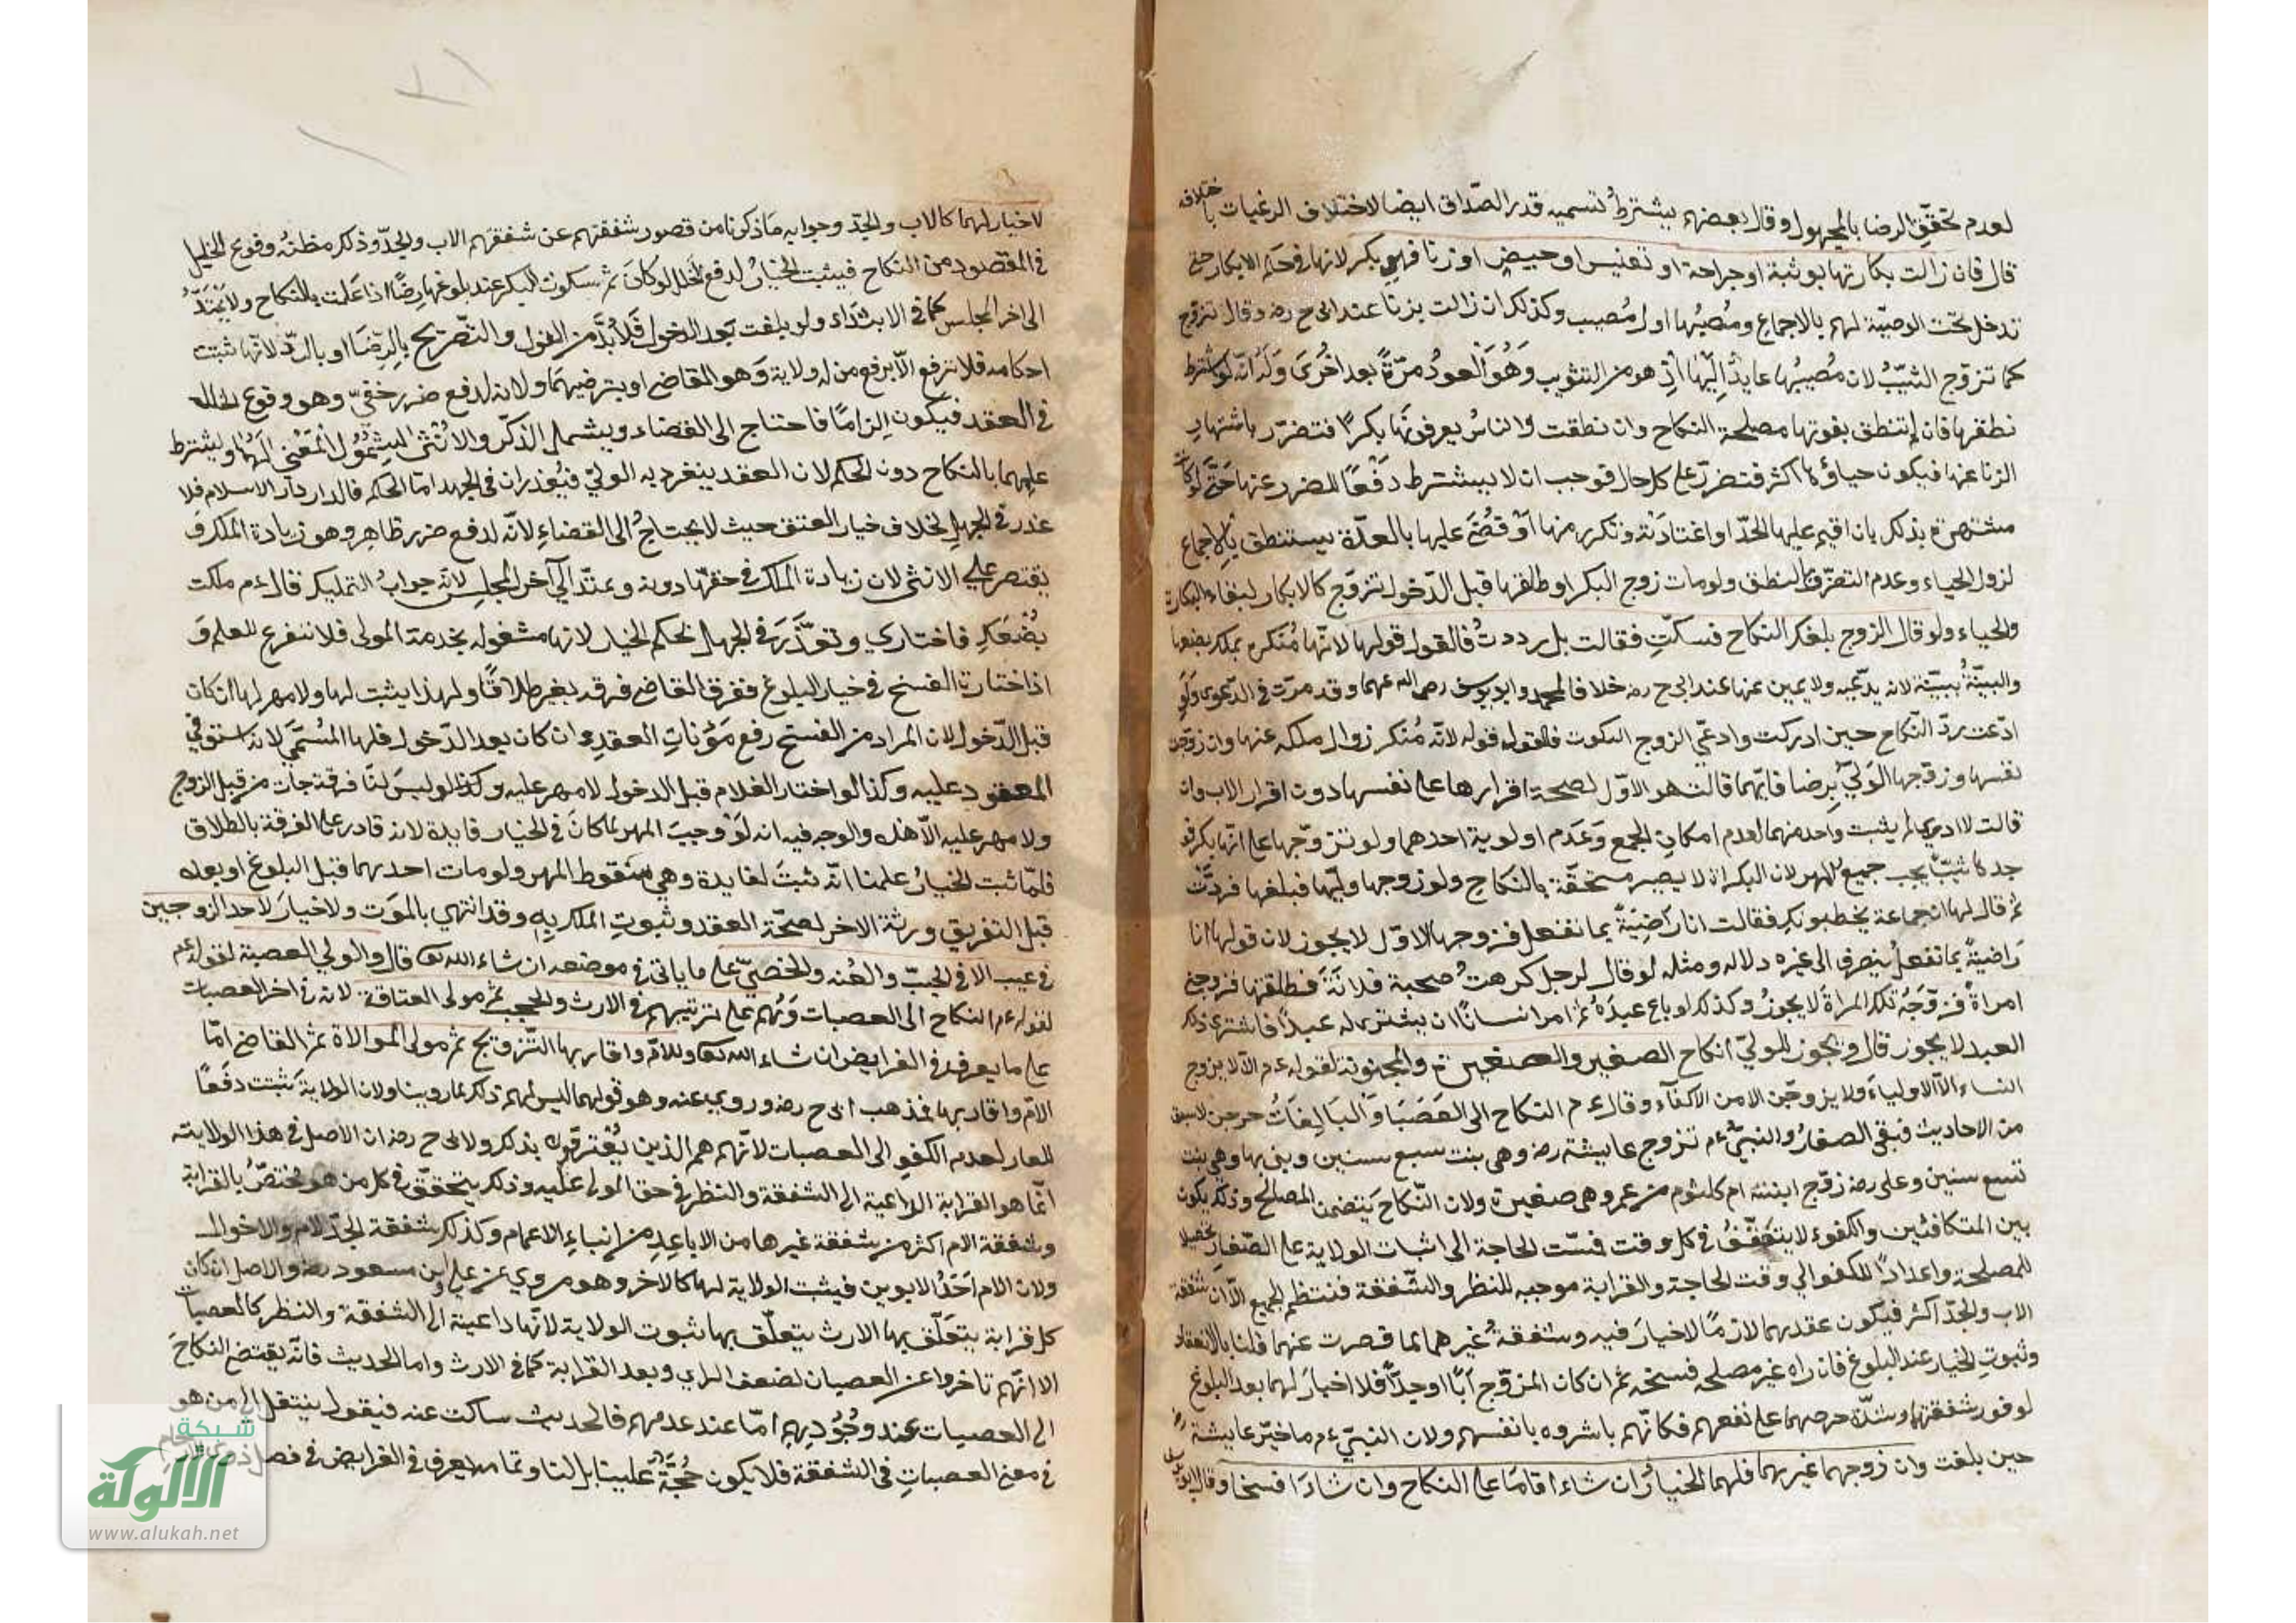 لعدم تحقق الرضا بالمجهول وقال بعضهم يشترط تسميه قدر الصداق ايضا لاختلاف الرغبات باختلافه
قال فان زالت بكارتها بوثبة او جراحة او تعنيس او حيض او زنا فهي بكر لانها في حكم الابكار حتى
تدخل تحت الوصية لهم بالاجماع ومصيبها اول مصيب وكذلك ان زالت بزنا عند ابي ح رضه وقال تزوج
كما تزوج الثيب لان مصيبها عايد اليها اذ هو من التثويب وهو العود مرة بعد اخرى وله انه لو شرط
نطقها فان لم تنطق يفوتها مصلحة النكاح وان نطقت والناس يعرفونها بكرا فتضرر باشتهار
الزنا عنها فيكون حياؤها اكثر فتضرر على كل حال فوجب ان لا يشترط دفعا للضرر عنها حتى لو كانت
مشتهرة بذلك بان اقيم عليها الحد او اعتادته وتكرر منها او قضى عليها بالعدة يستنطق بالاجماع
لزول الحياء وعدم التضرر بالنطق ولو مات زوج البكر او طلقها قبل الدخول تزوج كالابكار لبقاء البكارة
والحياء ولو قال الزوج بلغك النكاح فسكت فقالت بل رددت فالقول قولها لانها منكره بملك بضعها
والبينة ببينة لانه يدعيه ولا يمين عنها عند ابي ح رضه خلافا لمحمد وابو يوسف رحمه الله عنهما وقد مرت في الدعوى ولو
ادعت رد النكاح حين ادركت وادعى الزوج السكوت فالقول قوله لانه منكر زوال ملكه عنها وان زوجت
نفسها وزوجها الولي برضا فايهما قالت هو الاول لصحة اقرارها على نفسها دون اقرار الاب وان
قالت لا ادري لم يثبت واحد منهما لعدم امكان الجمع وعدم اولوية احدهما ولو تزوجها على انها بكر فو
جدها ثيب يجب جميع المهر لان البكارة لا يصير مستحقة بالنكاح ولو زوجها وليها فبلغها فردت
ثم قال لها ان جماعة يخطبونك فقالت انا راضية بما تفعل فزوجها الاول لا يجوز لان قولها انا
راضية بما تفعل ينصرف الى غيره دلاله ومثله لو قال لرجل كرهت صحبة فلانة فطلقها فزوجني
امراة فزوجه تلك المراة لا يجوز وكذلك لو باع عبده ثم امر انسانا ان يشتري له عبدا فاشترى ذلك
العبد لا يجوز قال ويجوز للولي انكاح الصغير والصغيرة والمجنونة لقوله عم الا لا يزوج
النساء الا الاولياء ولا يزوجن الا من الاكفاء وقال عم النكاح الى العصبا والبالغات خرجن لما سبق
من الاحاديث فبقى الصغار والنبي عم تزوج عايشة رضه وهي بنت سبع سنين وبنى بها وهي بنت
تسع سنين وعلى رضه زوج ابنته ام كلثوم من عمر وهى صغيرة ولان النكاح يتضمن المصالح وذلك يكون
بين المتكافئين والكفوء لا يتفق في كل وقت فمست الحاجة الى اثبات الولاية على الصغار تحصيلا
للمصلحة واعدادا للكفو الى وقت الحاجة والقرابة موجبه للنظر والشفقة فتنتظم الجميع الا ان شفقة
الاب والجد اكثر فيكون عقدهما لازما لا خيار فيه وشفقة غيرهما لما قصرت عنهما قلنا بالانعقاد
وثبوت الخيار عند البلوغ فان راه غير مصلحه فسخه ثم ان كان المزوج ابا او جدا فلا اخيار لهما بعد البلوغ
لوفور شفقتهما وشدة حرصهما على نفعهم فكانهم باشروه بانفسهم ولان النبي عم ما خير عايشة
حين بلغت وان زوجهما غيرهما فلهما الخيار ان شاء اقاما على النكاح وان شاءا فسخا وقال ابو يوسف
لا خيار لهما كالاب والجد وجوابه ما ذكرنا من قصور شفقتهم عن شفقتهم الاب والجد وذكر مظنه وقوع الخلل
في المقصود من النكاح فيثبت الخيار لدفع الخلل لو كان ثم سكوت البكر عند بلوغها رضا اذا علمت بالنكاح ولا يمتد
الى اخر المجلس كما في الابتداء ولو بلغت بعد الدخول فلا بد من القول والتصريح بالرضا او بالرد لانها ثبت
احكامه فلا ترفع الا برفع من له ولاية وهو القاضى او بترضيهما ولانه لدفع ضرر خفي وهو وقوع الخلل
في العقد فيكون الزاما فاحتاج الى القضاء ويشمل الذكر والانثى لشمول المعنى لهما ويشترط
علمهما بالنكاح دون الحكم لان العقد ينفرد به الولي فيعذران في الجهد اما الحكم فالدار دار الاسلام فلا
عذر في الجهل بخلاف خيار العتق حيث لا يحتاج الى القضاء لانه لدفع ضرر ظاهر وهو زيادة الملك و
يقتصر على الانثى لان زيادة الملك في حقها دونه ويمتد الى آخر المجلس لانه جواب التمليك قال عم ملكت
بضعك فاختاري وتعذر في الجهل بحكم الخيار لانها مشغوله بخدمة المولى فلا تتفرغ للعلم و
اذا اختارت الفسخ في خيار البلوغ ففرق القاضى فرقه بغير طلاقا ولهذا يثبت لها ولا مهر لها ان كان
قبل الدخول لان المراد من الفسخ رفع مؤنات العقد وان كان بعد الدخول فلها المسمى لانه استوفى
المعقود عليه وكذا لو اختار الغلام قبل الدخول لا مهر عليه وكذا لو ليس لنا فرقة جات من قبل الزوج
ولا مهر عليه الا هذه والوجه فيه انه لو وجب المهر لما كان في الخيار فايدة لانه قادر على الفرقة بالطلاق
فلما ثبت الخيار علمنا انه ثبت لفايدة وهي سقوط المهر ولو مات احدهما قبل البلوغ او بعده
قبل التفريق ورثة الاخر لصحة العقد وثبوت الملك به وقد انتهي بالموت ولا خيار لاحد الزوجين
في عيب الا في الجب والعنه والخصي على ما ياتي في موضعه ان شاء الله تعا قال والولي العصبة لقوله عم
لقوله عم النكاح الى العصبات وهم على ترتيبهم في الارث والحجب ثم مولى العتاقة لانه في اخر العصبات
على ما يعرف في الفرايض ان شاء الله تعا وللام واقاربها التزويج ثم مولى الموالاة ثم القاضى اما
الام واقاربها فمذهب ابى ح رضه وروي عنه وهو قولهما ليس لهم ذلك لما روينا ولان الولاية تثبت دفعا
للعار لعدم الكفو الى العصبات لانهم هم الذين بذلك ولابي ح رضه ان الاصل في هذا الولايته
انما هو القرابة الداعية الى الشفقة والنظر في حق المولى عليه وذلك يتحقق في كل من هو مختص بالقرابة
وشفقة الام اكثر من شفقة غيرها من الاباعد من ابناء الاعمام وكذلك شفقة الجد لام والاخوال
ولان الام احد الابوين فيثبت الولاية لها كالاخر وهو مروي عن علي وابن مسعود رضه والاصل ان كان
كل قرابة يتعلق بها الارث يتعلق بها ثبوت الولاية لانها داعية الى الشفقة والنظر كالعصبات
الا انهم تاخروا عن العصبان لضعف الراي وبعد القرابة كما في الارث واما الحديث فانه يقتضى النكاح
الى العصبات عند وجوديهم اما عند عدمهم فالحديث ساكت عنه فيقول ينتقل الى من هو
في معنى العصبات في الشفقة فلا يكون حجة علينا بل لنا وتمامه يعرف في الفرايض في فصل
شبكة
الألوكة
www.alukah.net